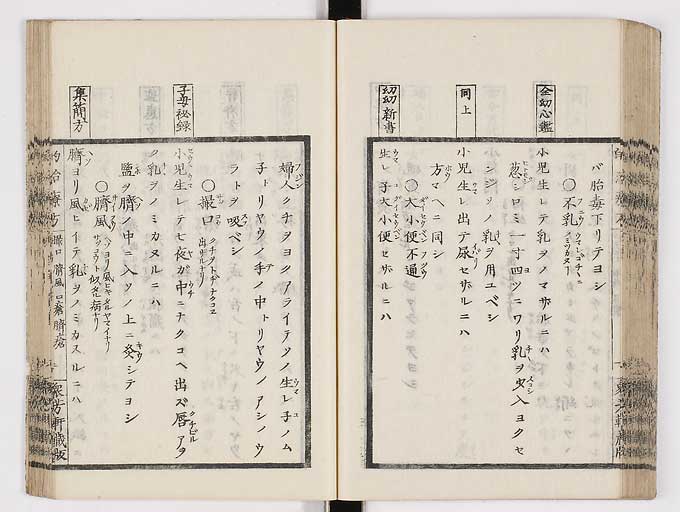 バ胎毒下リテヨシ
○不乳
全幼心鑑
小児生レテ乳ヲノマザルニハ
葱シロミ一寸四ツニワリ乳ヲ少入ヨクセ
ンジソノ乳ヲ用ユベシ
同上
小児生レ出テ尿セザルニハ
方マヘニ同シ
○大小便不通
幼幼新書
生レ子大小便セザルニハ
婦人クチヲヨクアライテソノ生レ子ノム
子トリヤウノ手ノ中トリヤウノアシノウ
ラトヲ吸ベシ
○撮口
子母秘録
小児生レテ七夜ガ中ニナクコヘ出ズ唇アヲ
ク乳ヲノミカヌルニハ
塩ヲ臍ノ中ニ入ソノ上ニ灸シテヨシ
○臍風
集簡方
臍ヨリ風ヒイテ乳ヲノミカヌルニハ
的治療方
衆芳軒蔵版